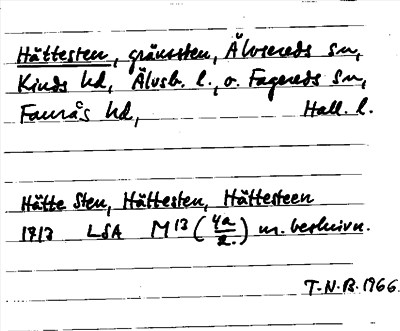 Hättesten, gränssten, Älvsereds sn,
Kinds hd, Älvsb. l., o. Fagereds sn,
Faurås hd, Hall. l.
Hätte Sten, Hättesten, Hättesteen
1713 LSA M13 (4a/2.) m. beskrivn.
T.N.B. 1966.